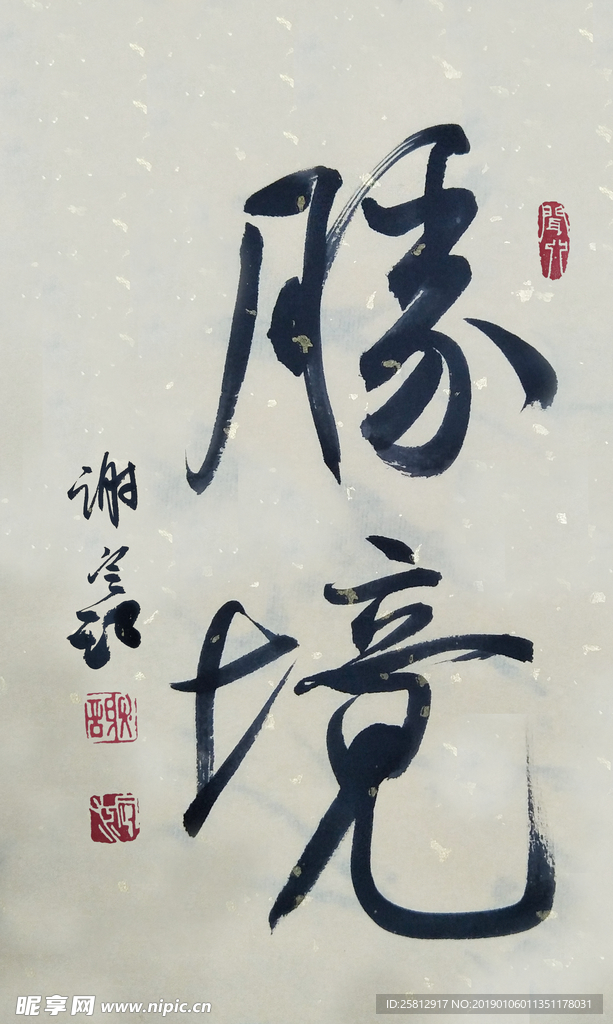 勝
境
谢
昵享网 www.nipic.cn
ID:25812917 NO:20190106011351178031